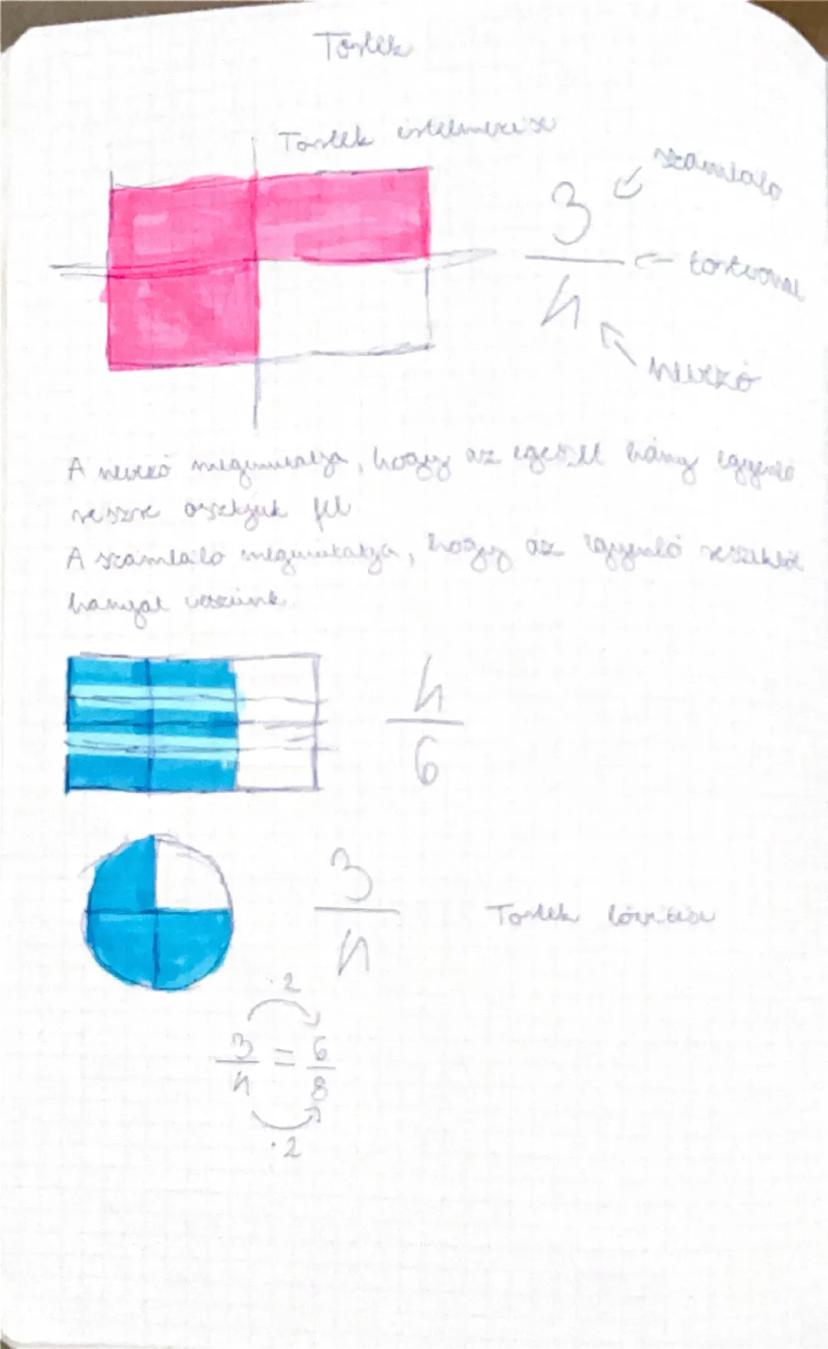 Törtek
Törtek értelmezése
3 számláló
törtvonal
4
nevező
A nevező megmutatja, hogy az egészet hány egyenlő
részre osztjuk fel
A számláló megmutatja, hogy az egyenlő részekből
hányat veszünk.
4
6
3
4
Törtek bővítése
·2
3 = 6
4 8
·2